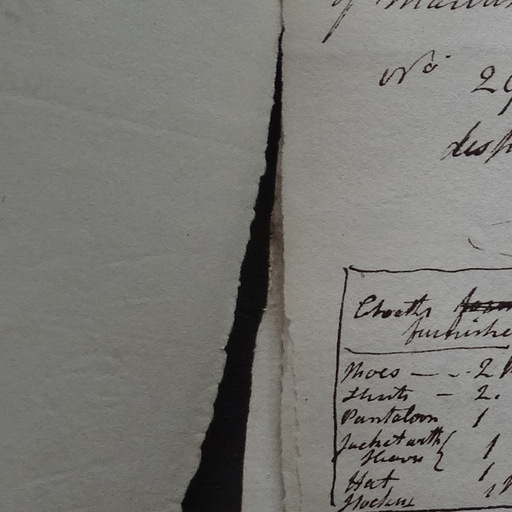 of
No 29
Cloaths
furnishe
Shoes — - 2
Shirts — 2.
Pantaloon 1
Jacket with 1
Sleeves
Hat 1
Stockins